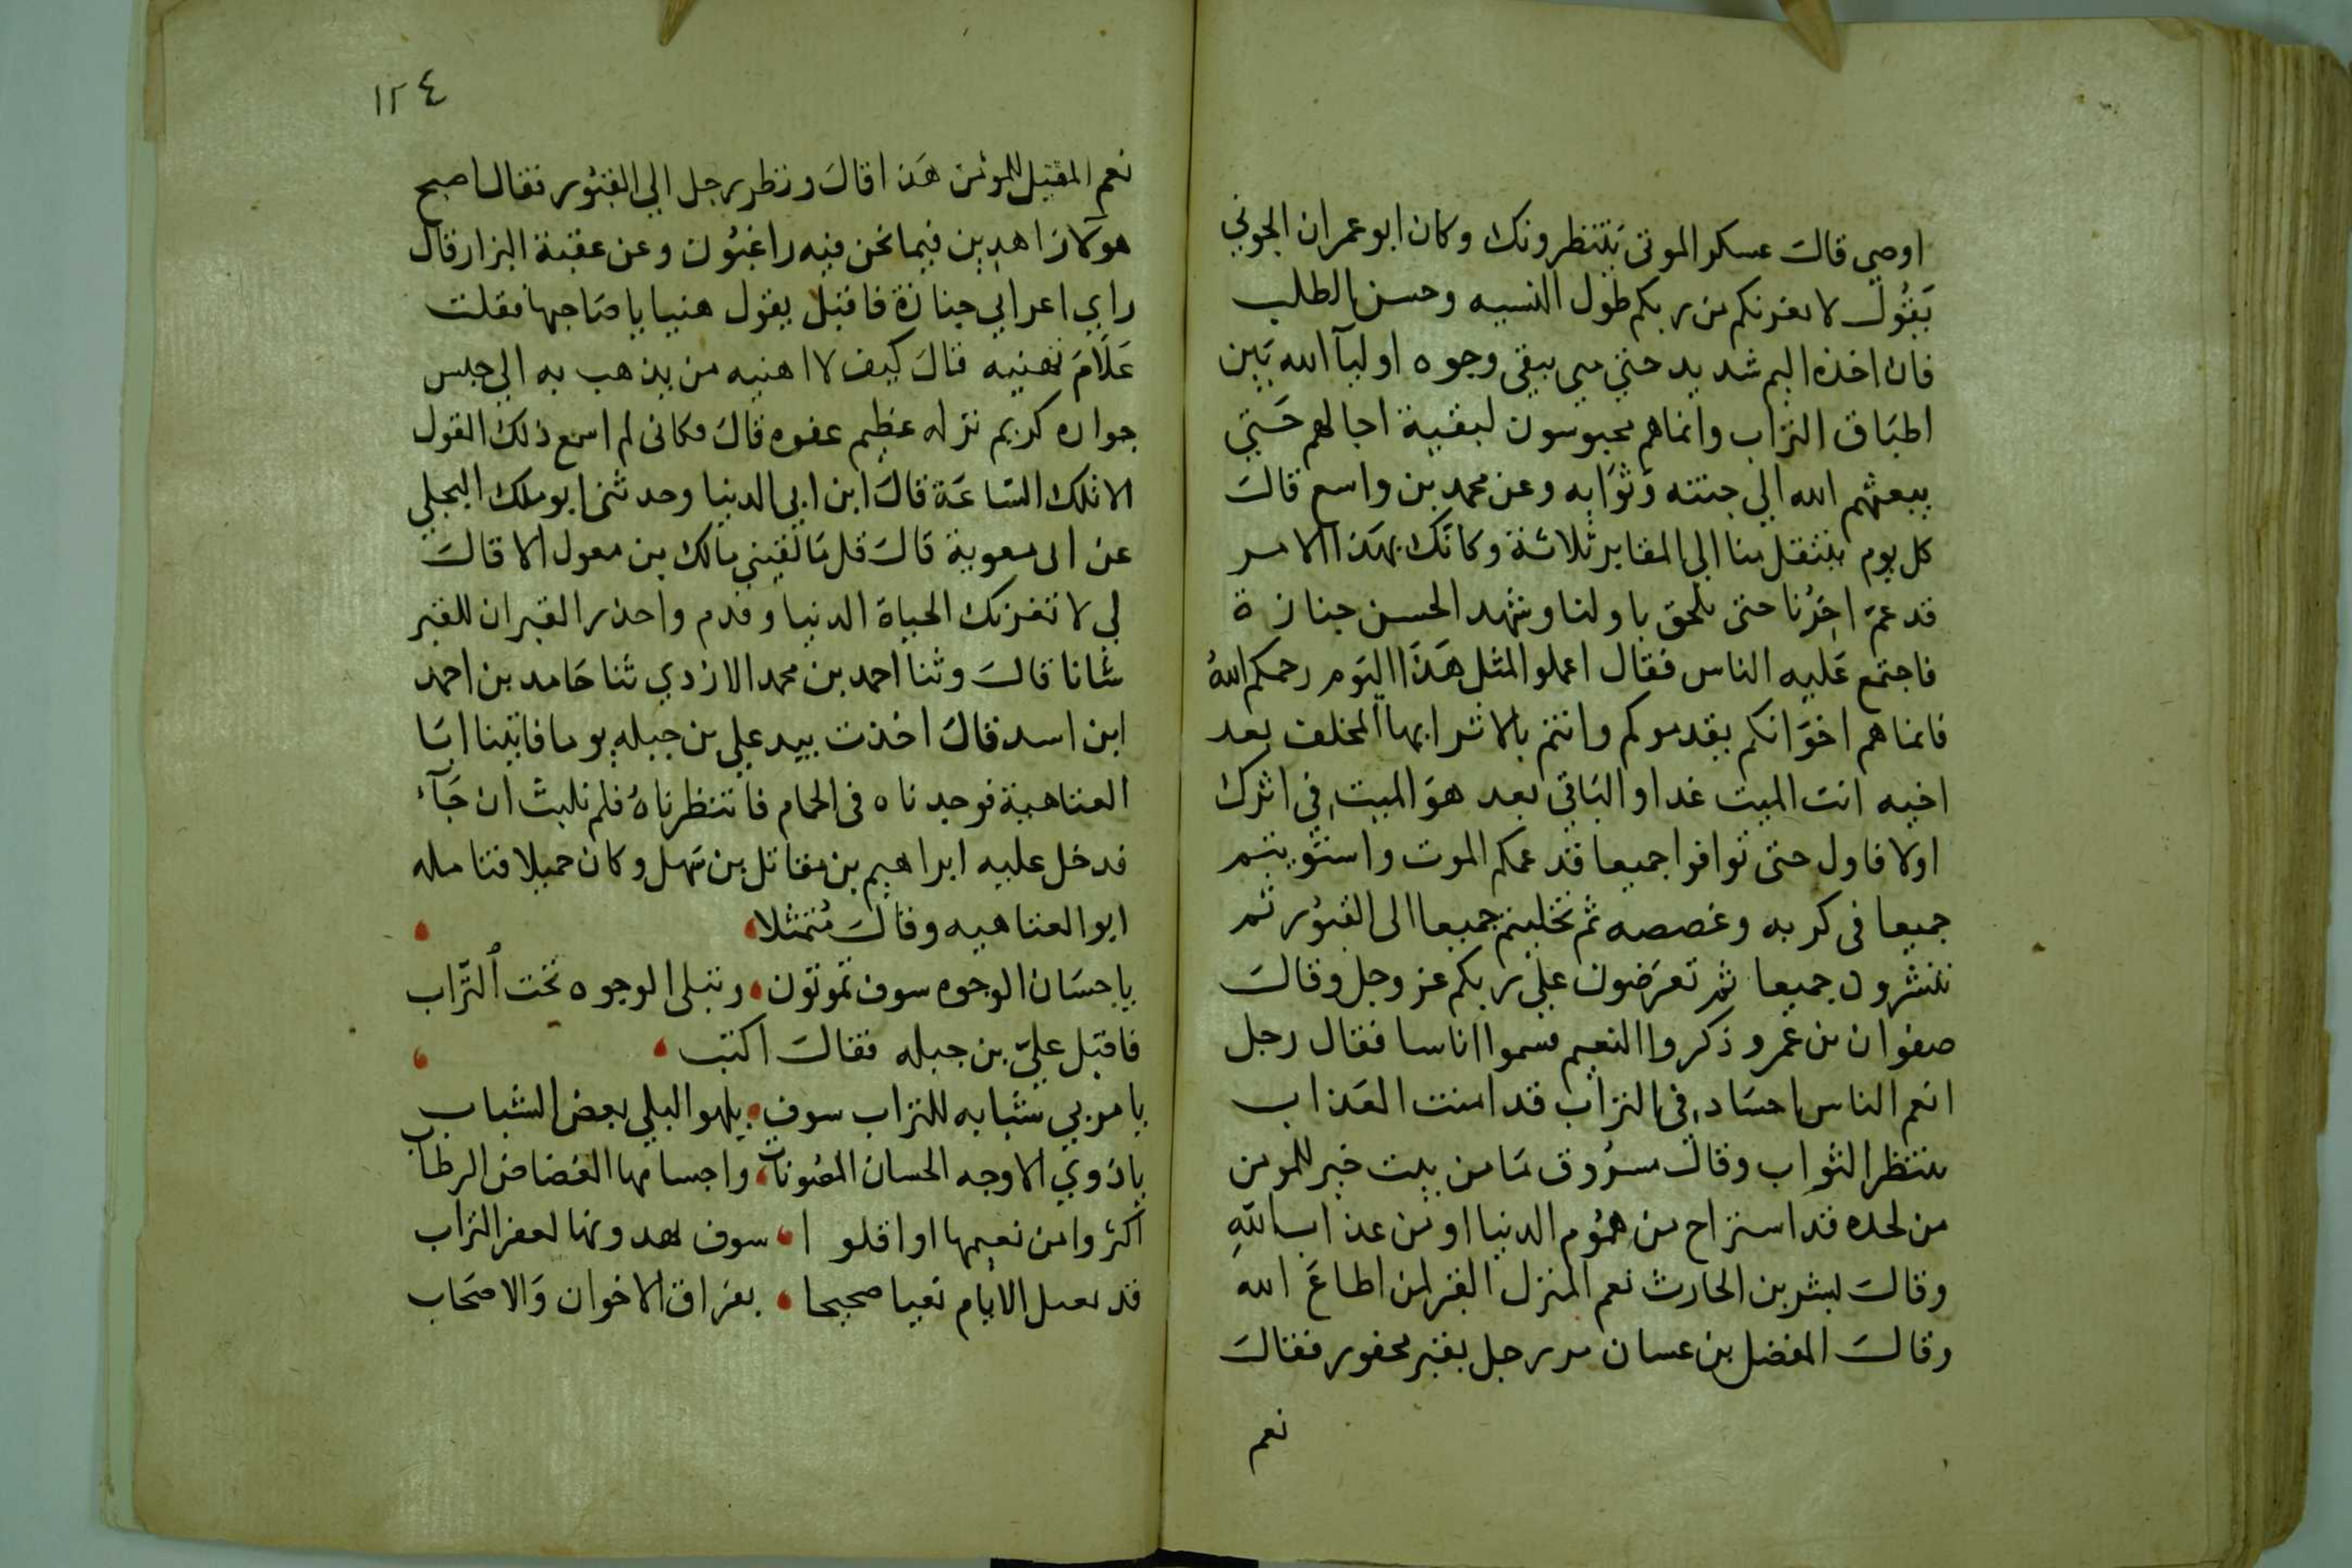 اوصي قال عسكر الموتى ينتظرونك وكان ابو عمران الجوني
يَقُول لا يغرنكم من ربكم طول النسيه وحسن الطلب
فان اخذه اليم شديد حتي متي يبقي وجوه اوليآ الله بَين
اطبَاق التراب وانماهم محبوسون لبقية اجالهم حَتي
يبعثهم الله الي جنته وثوَابه وعن محمد بن واسع قال
كل يوم ينتقل منا الي المقابر ثلاثة وكانك بهَذا الامر
قد عم اخرُنا حتى يلحق باولنا وشهد الحسن جنازة
فاجتمع عَليه الناس فقال اعملوا لمثل هَذا اليَوم رحمكم اللهُ
فانما هم اخوَانكم يقدموكم وانتم بالاثر ايها المخلف بعد
اخيه انت الميت غدا والبَاقي بعد هوَ الميت في اثرك
اولا فاول حتى توافوا جميعا قد عمكم الموت واستويتم
جميعا فى كربه وغصصه ثم تخليتم جميعا الى القبُور ثم
تنشرون جميعا ثم تعرَضون علي ربكم عز وجل وقال
صفوان بن عمرو ذكروا النعيم فسموا اناسا فقال رجل
انعم الناس اجسَاد في التراب قد امنت العَذاب
ينتظر الثواب وقال مسرُوق مَا من بيت خير للمومن
من لحده قد استراح من همُوم الدنيا او من عذاب اللهِ
وقال بشر بن الحارث نعم المنزل القبر لمن اطاعَ الله
وقال المفضل بن غسان مر رجل بقبر محفور فقال
نعم
١٢٤
نعم المقيل للمؤمن هَذا قالَ ونظر رجل الي القبُور فقال اصبح
هولآ زاهدين فيما نحن فيه راغبُون وعن عقبة البزار قال
راي اعرابي جنازة فاقبل يقول هنيا يا صَاحبها فقلت
عَلَامَ تهنيه قال كيف لا اهنيه من يذهب به الي حبس
جواده كريم نزله عظيم عفوه قال فكاني لم اسمع ذلك القول
الا تلك السّاعَة قال ابن ابي الدنيا وحدثني ابو ملك البجلي
عن ابى معوية قالَ قل مَا لقيني مالك بن مغول الا قال
لي لا تغرنك الحياة الدنيا وقدم واحذر القبر ان للقبر
شانا قال وثنا احمد بن محمد الازدي ثنا حَامد بن احمد
ابن اسد قال اخذت بيد علي بن جبله يوما فاتينا ابَا
العتاهية فوجدناه فى الحمام فانتظرناهُ فلم نلبث ان جَآء
فدخل عليه ابراهيم بن مقاتل بن سهل وكان جميلا فتامله
ابو العتاهيه وقال مُتمثلا
يا حسَان الوجوه سوف تموتون وتبلى الوجوه تحت التّراب
فاقبل عليّ بن جبله فقال اكتب
يا مربي شبابه للتراب سوف يلهو البلي بعض الشباب
يا ذَوي الاوجه الحسان المصُونات واجسامها الغضاض الرطاب
اكثروا من نعيمها او اقلوا سوف تهدونها لعفر التراب
قد تعمل الايام نعيا صحيحا بفراق الاخوان وَالاصحَاب